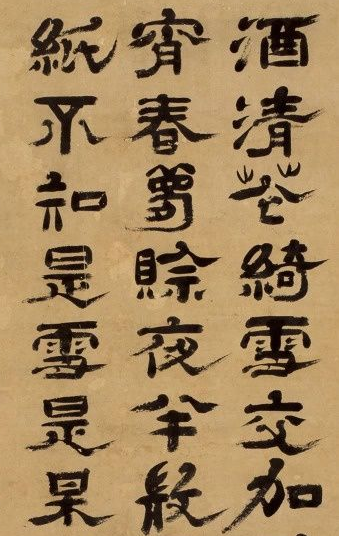 酒清花綺雪交加
宵春夢賒夜半
紙不知是雪是呆